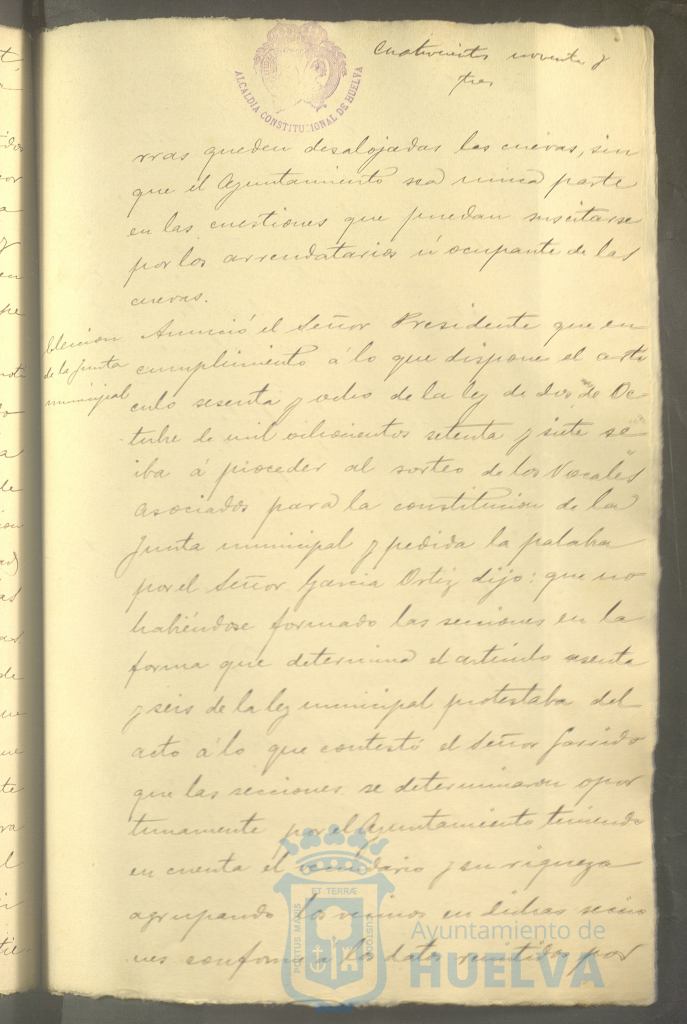 Cuatrocientos noventa y
tres
ALCALDIA CONSTITUCIONAL DE HUELVA
rras queden desalojadas las cuevas, sin
que el Ayuntamiento sea nunca parte
en las cuestiones que puedan suscitarse
por los arrendatarios ú ocupante de las
cuevas.
de la Junta
municipal
Anunció el Señor Presidente que en
cumplimiento á lo que dispone el artí
culo sesenta y ocho de la ley de dos de Oc
tubre de mil ochocientos setenta y siete se
iba á proceder al sorteo de los Vocales
asociados para la constitucion de la
Junta municipal y pedida la palabra
por el Señor Garcia Ortiz dijo: que no
habiéndose formado las secciones en la
forma que determina el artículo sesenta
y seis de la ley municipal protestaba del
acto á lo que contestó el Señor Garrido
que las secciones se determinaron opor
tunamente por el Ayuntamiento teniendo
en cuenta el vecindario y su riqueza
agrupando los vecinos en dichas seccio
nes conforme á los datos remitidos por
ET TERRÆ
PORTUS MARIS
CUSTODIA
Ayuntamiento de
HUELVA